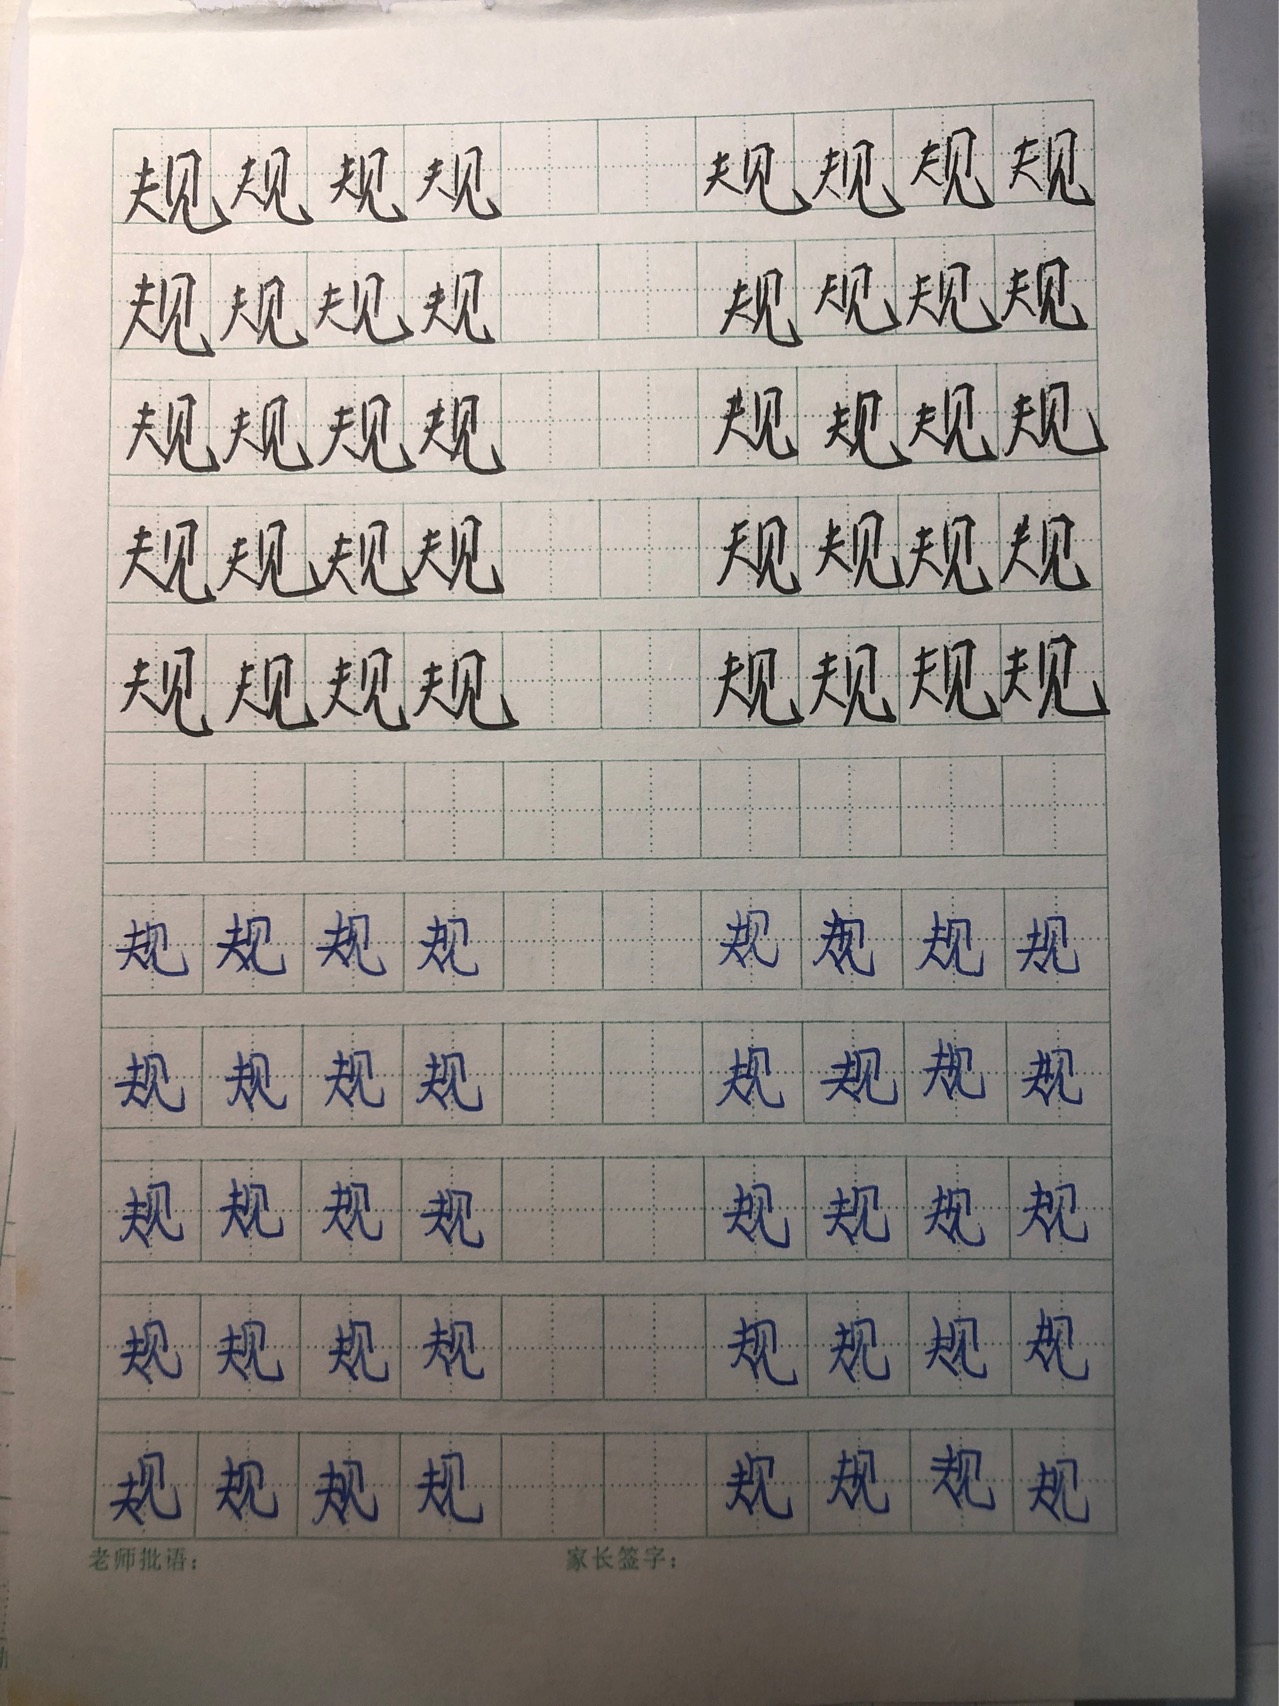 规规规规 规规规规
规规规规 规规规规
规规规规 规规规规
规规规规 规规规规
规规规规 规规规规
规规规规 规规规规
规规规规 规规规规
规规规规 规规规规
规规规规 规规规规
规规规规 规规规规
老师批语： 家长签字：